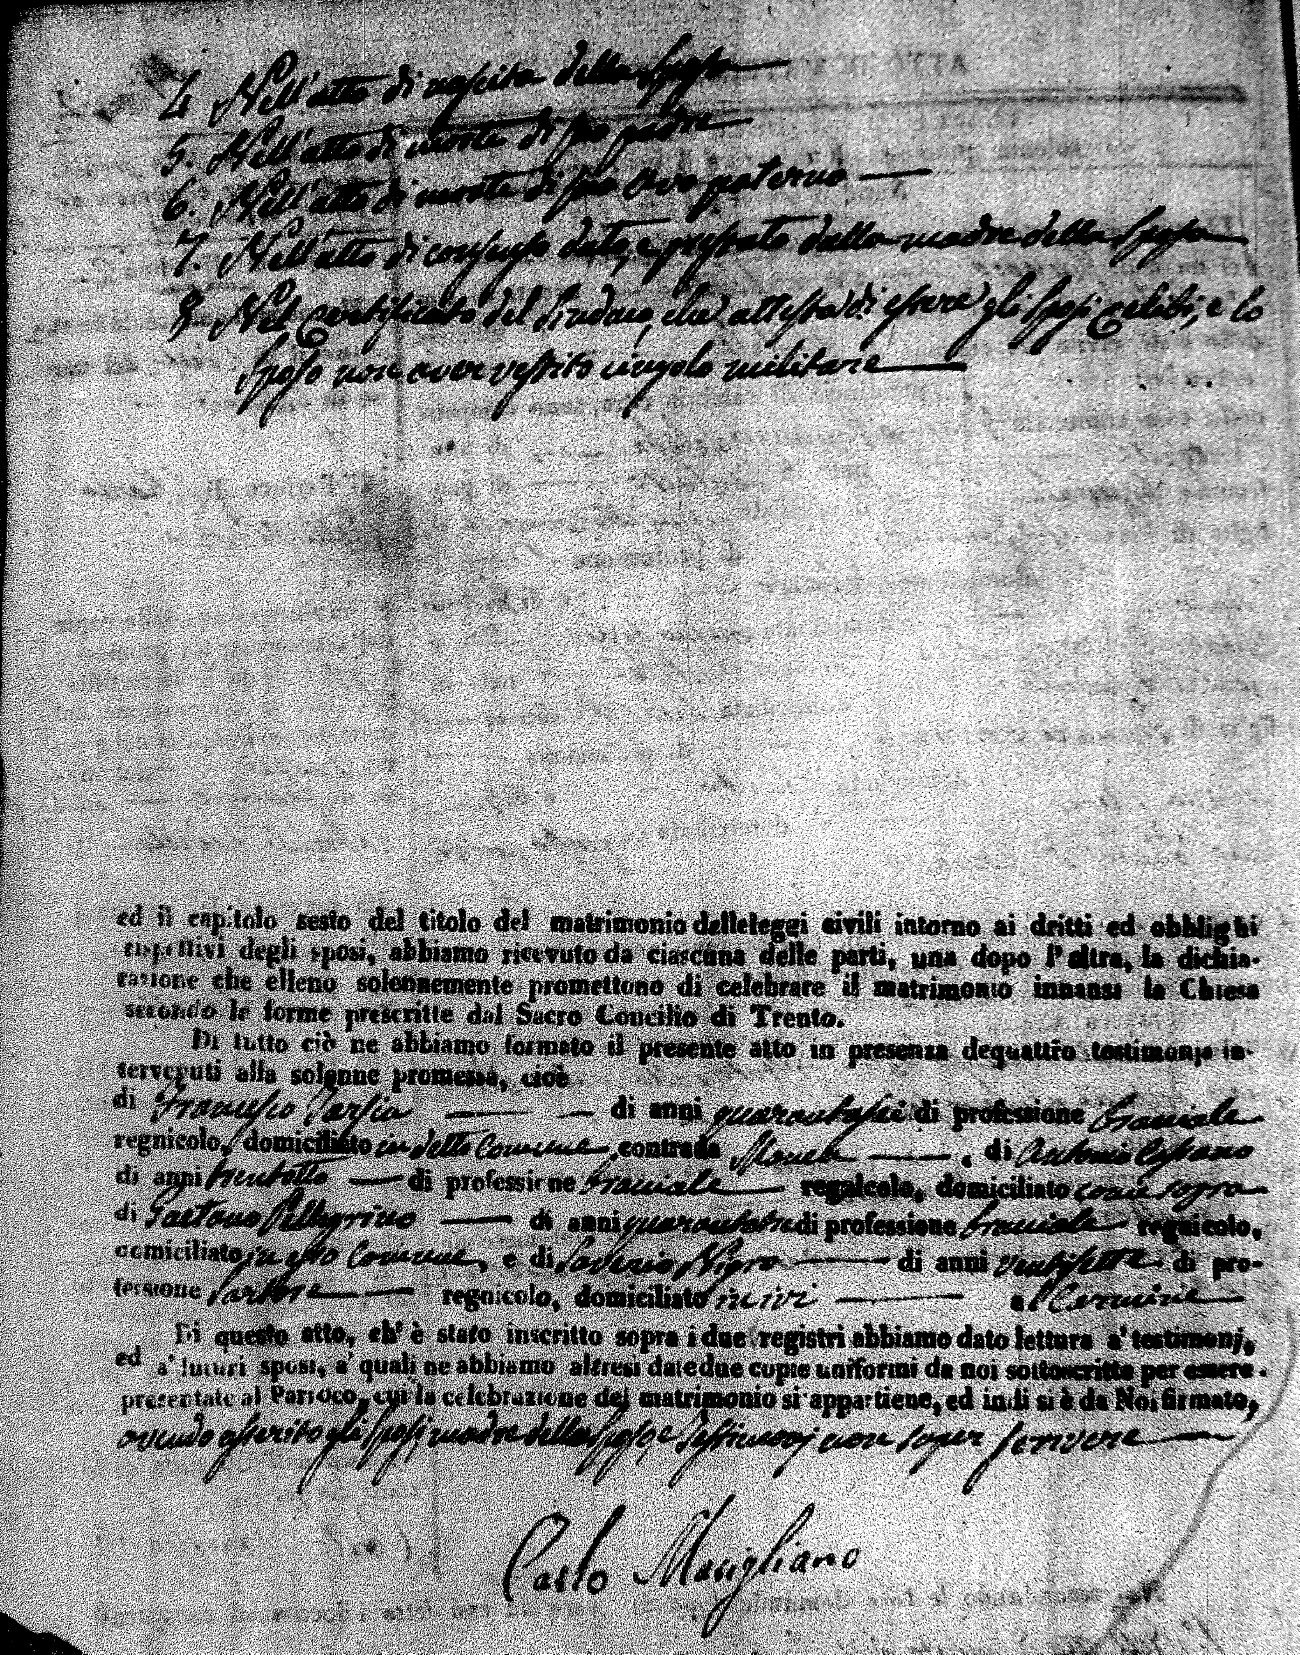 4. Nell'atto di nascita della Sposa
5. Nell'atto di morte di suo padre
6. Nell'atto di morte di suo avo paterno
7. Nell'atto di consenso dato, e prestato dalla madre della Sposa
8. Nel Certificato del Sindaco, che attesta di essere gli Sposi Celibi, e lo
Sposo non aver vestito cingolo militare
ed il capitolo sesto del titolo del matrimonio delle leggi civili intorno ai dritti ed obblighi
rispettivi degli sposi, abbiamo ricevuto da ciascuna delle parti, una dopo l'altra, la dichia-
razione che elleno solonnemente promettono di celebrare il matrimonio innansi la Chiesa
secondo le forme prescritte dal Sacro Concilio di Trento.
Di tutto ciò ne abbiamo formato il presente atto in presenza de quattro testimonj in-
tervenuti alla solenne promessa, cioè
di Francesco Tarsia di anni quarantasei di professione bracciale
regnicolo, domiciliato in detto Comune, contrada , di Antonio
di anni trentotto di professione bracciale regnicolo, domiciliato come sopra
di Gaetano Pellegrino di anni quarantatre di professione bracciale regnicolo,
domiciliato in esso Comune, e di Saverio Nigro di anni ventisette di pro-
fessione Sartore regnicolo, domiciliato in ivi al Carmine
Di questo atto, ch' è stato inscritto sopra i due registri abbiamo dato lettura a' testimonj,
ed a' futuri sposi, a' quali ne abbiamo altresì date due copie uniformi da noi sottoscritte per essere
presentate al Parroco, cui la celebrazione del matrimonio si appartiene, ed indi si è da Noi firmato,
avendo asserito gli Sposi, madre della Sposa e Testimonj non saper scrivere
Carlo Marigliano